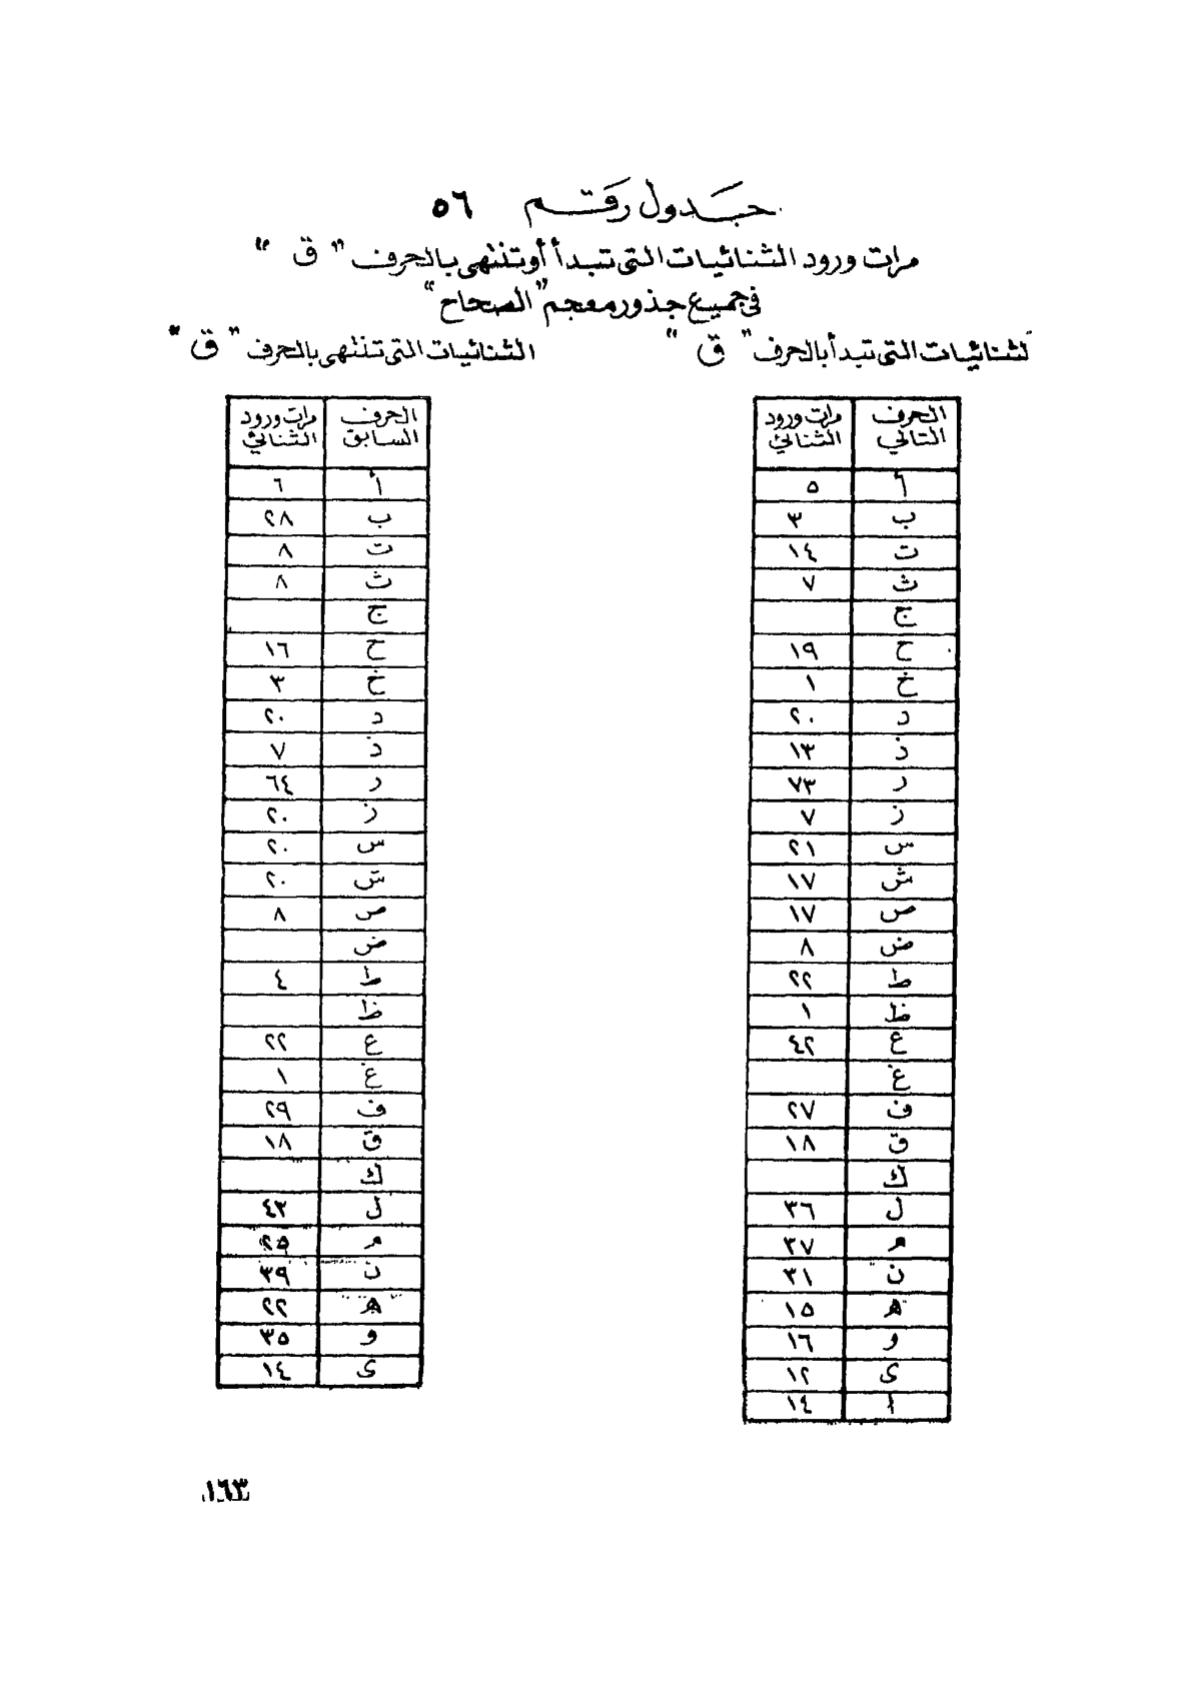 جدول رقم ٥٦
مرات ورود الثنائيات التى تبدأ أو تنتهى بالحرف " ق "
فى جميع جذور معجم "الصحاح"
لثنائيات التى تبدأ بالحرف " ق "
الحرف التالي	مرات ورود الثنائي
أ	٥
ب	٣
ت	١٤
ث	٧
ج
ح	١٩
خ	١
د	٢٠
ذ	١٣
ر	٧٣
ز	٧
س	٢١
ش	١٧
ص	١٧
ض	٨
ط	٢٢
ظ	١
ع	٤٢
غ
ف	٢٧
ق	١٨
ك
ل	٣٦
م	٣٧
ن	٣١
ه	١٥
و	١٦
ى	١٢
ا	١٤
الثنائيات التى تنتهى بالحرف " ق "
الحرف السابق	مرات ورود الثنائي
أ	٦
ب	٢٨
ت	٨
ث	٨
ج
ح	١٦
خ	٣
د	٢٠
ذ	٧
ر	٦٤
ز	٢٠
س	٢٠
ش	٢٠
ص	٨
ض
ط	٤
ظ
ع	٢٢
غ	١
ف	٢٩
ق	١٨
ك
ل	٤٣
م	٢٥
ن	٣٩
ه	٢٢
و	٣٥
ى	١٤
١٦٣